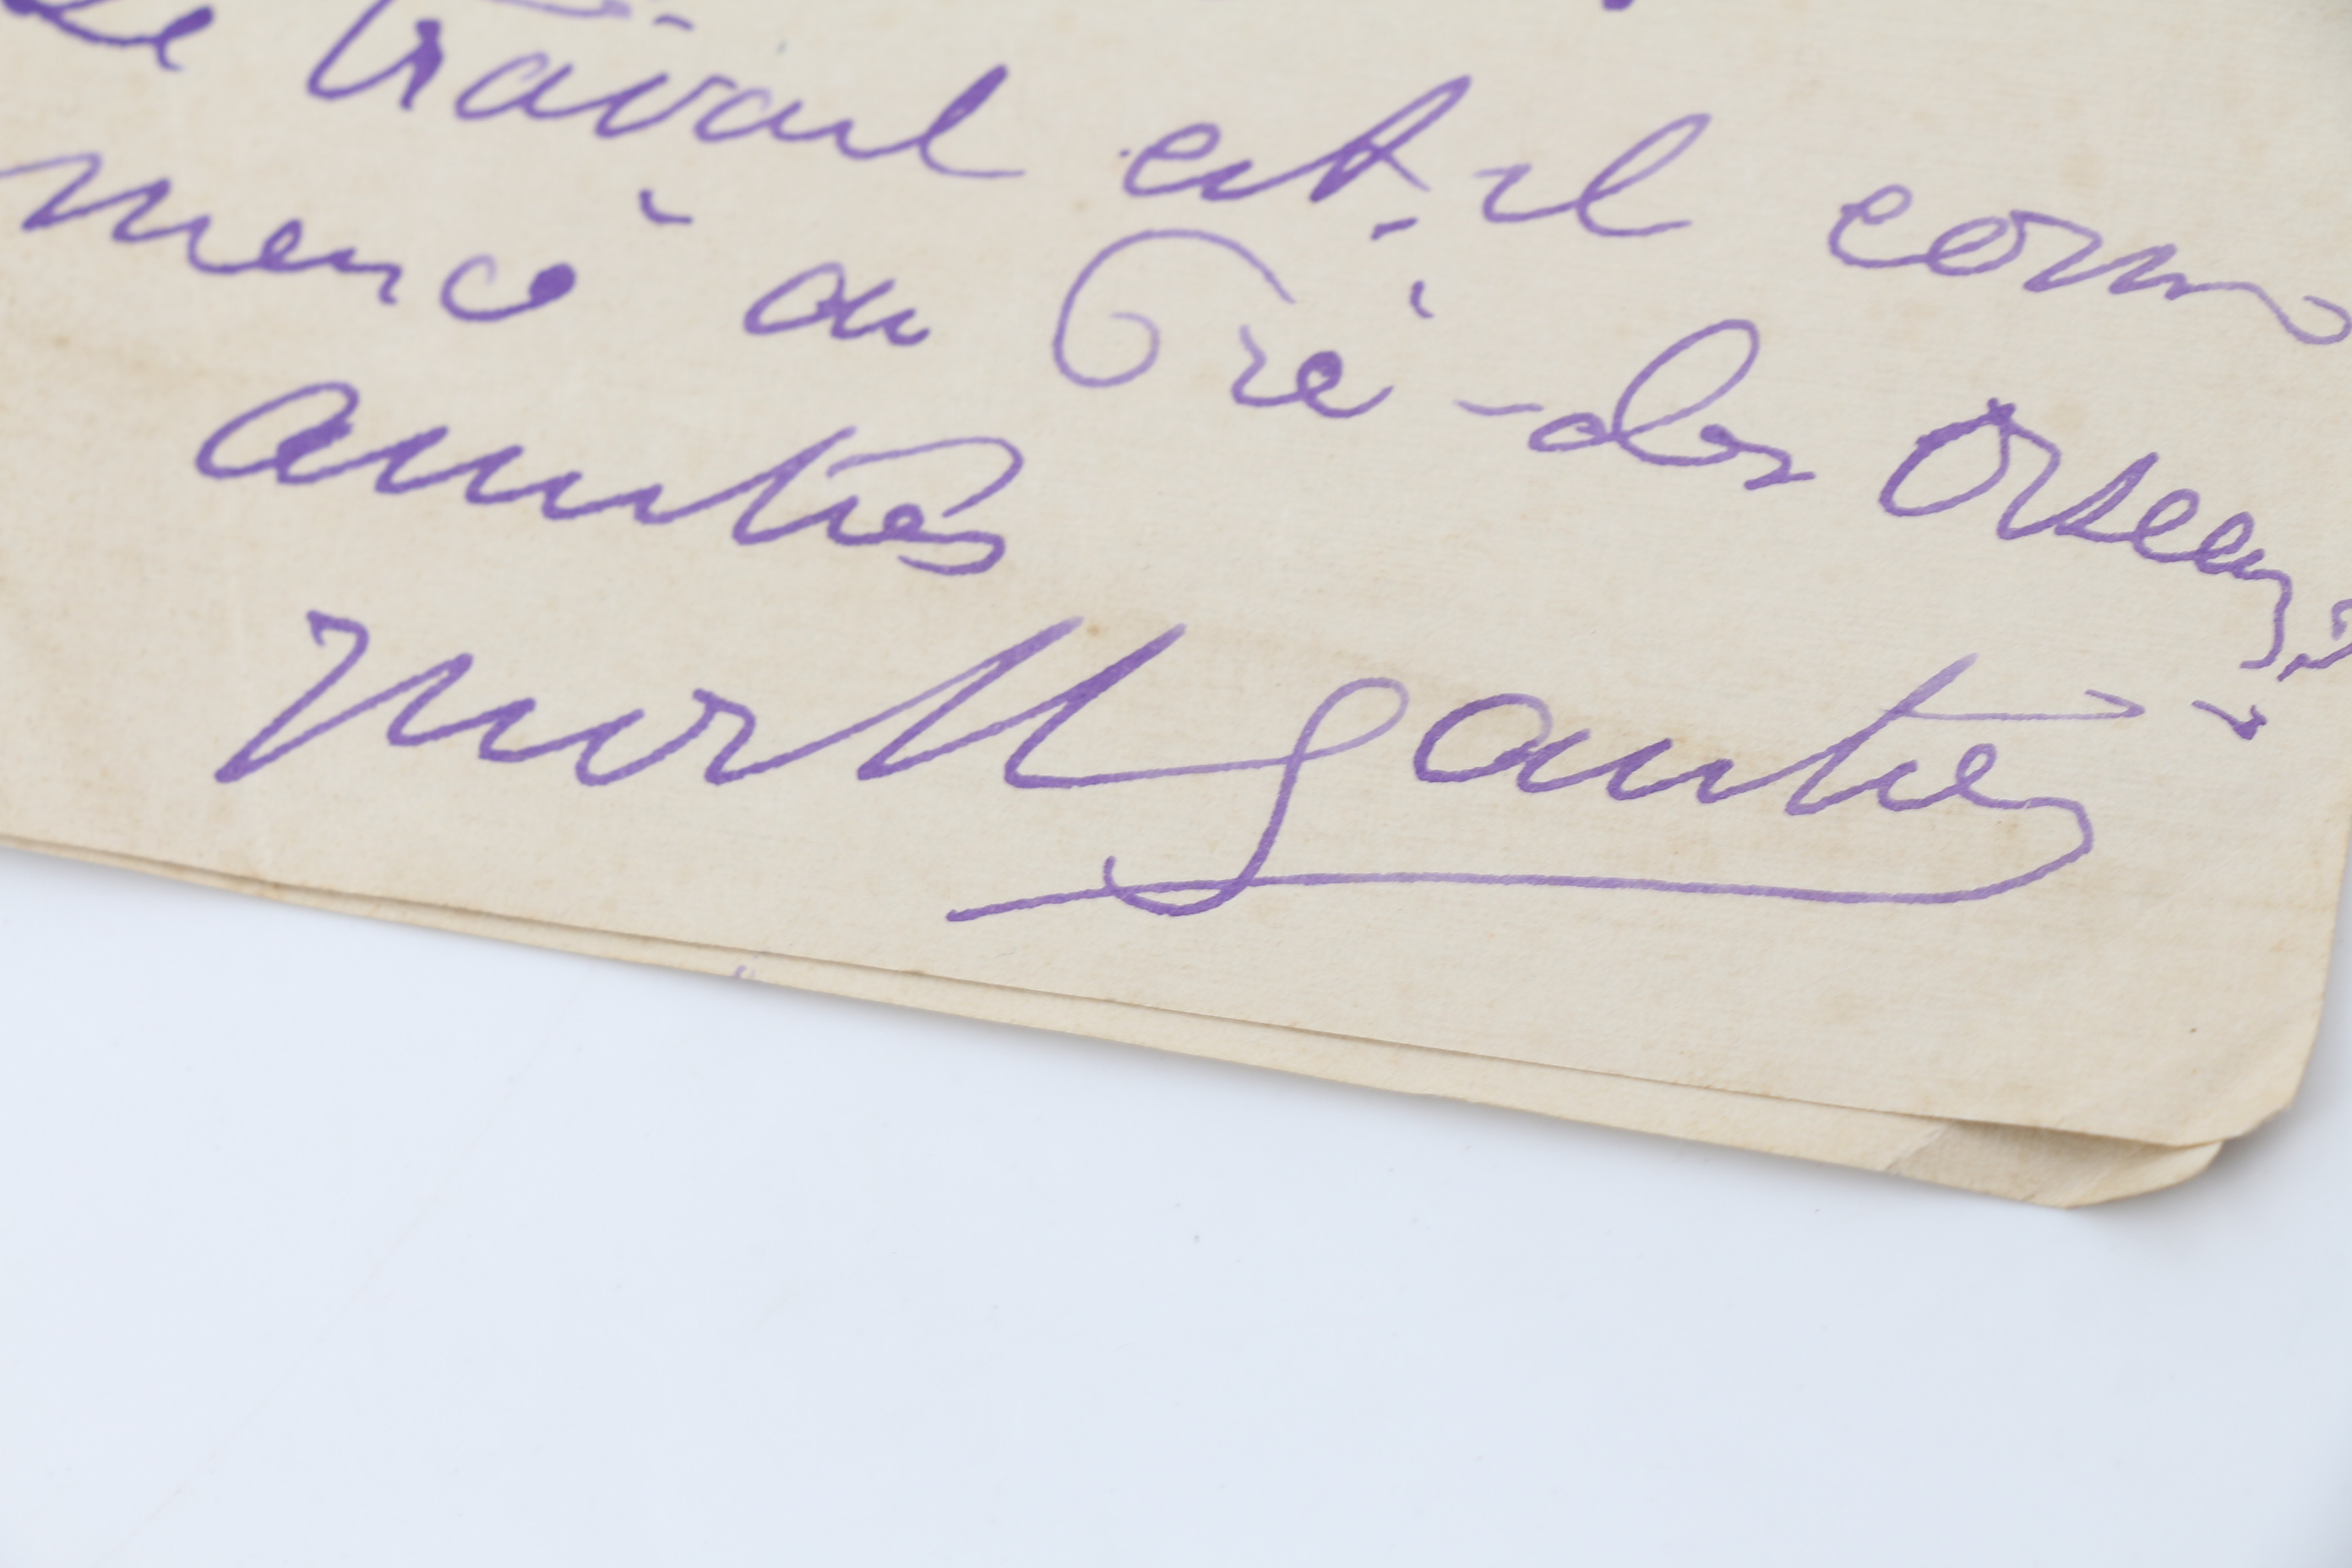 Le travail est-il com
mencé au Pré-des Oiseaux?
amitiés
Judith Gautier